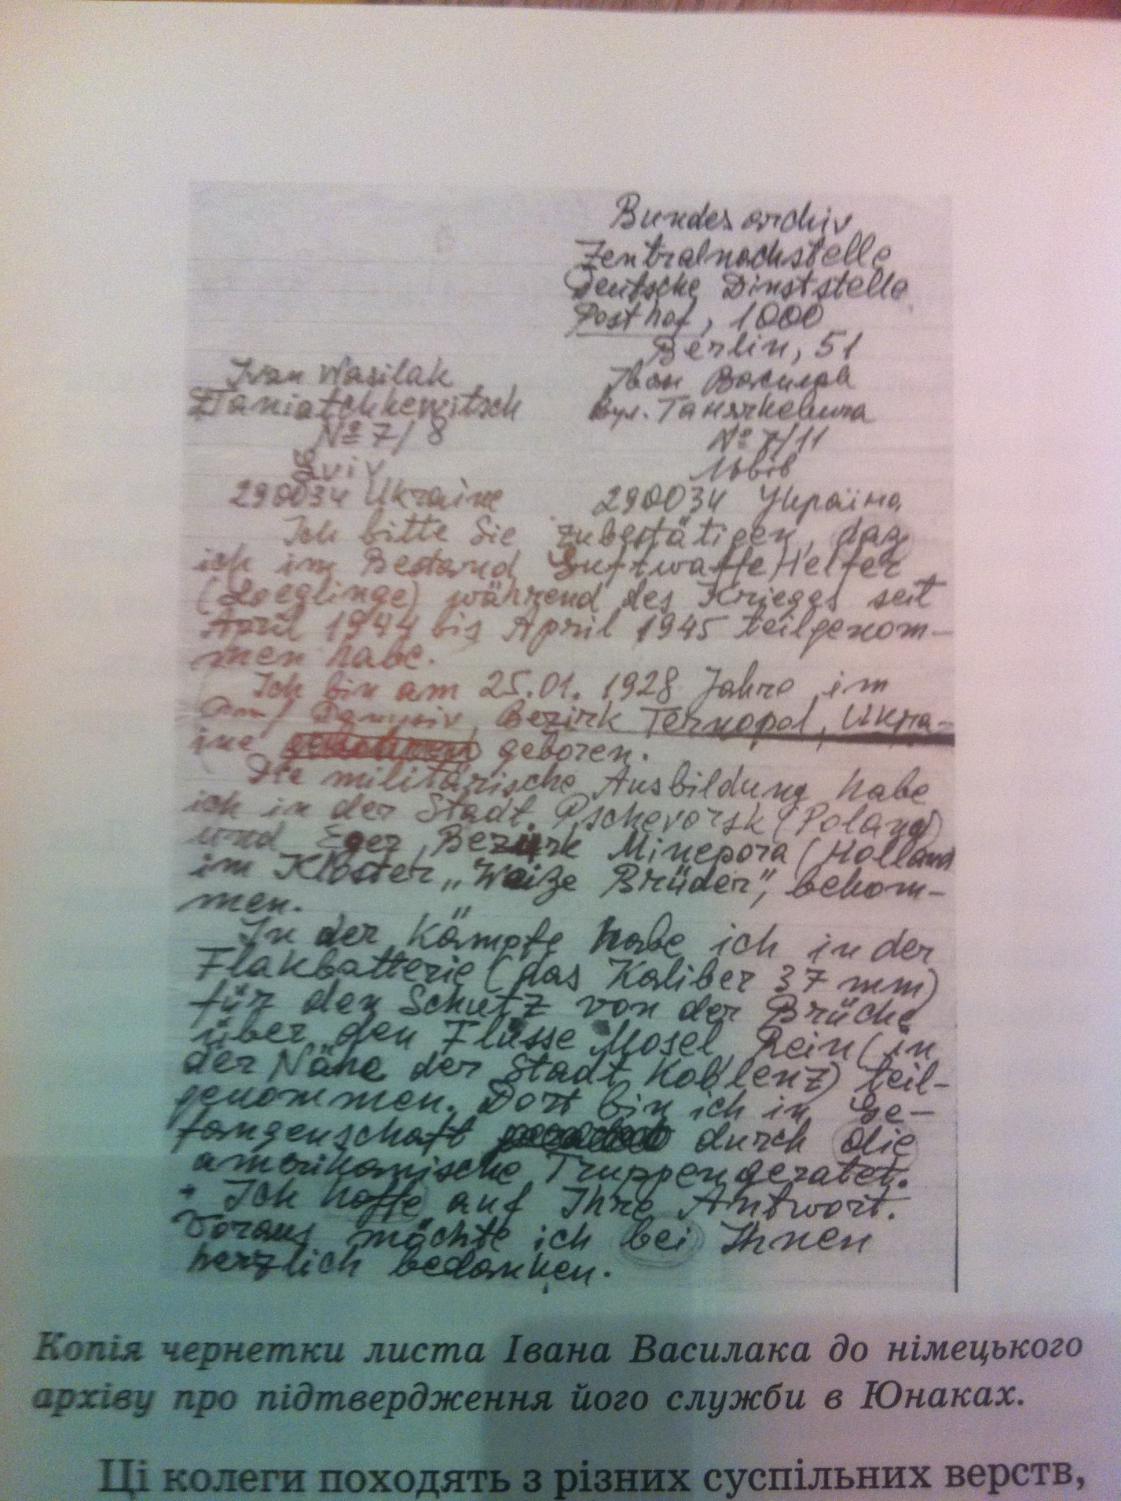 Bundesarchiv
Zentralnachstelle
Deutsche Dinststelle
Posthof, 1000
Berlin, 51
Ivan Wasilak
Іван Василак
Taniatchkewitsch
вул. Танячкевича
№ 7/8
№ 7/11
Lviv
Львів
290034 Ukraine
290034 Україна
Ich bitte Sie zubestätigen, daz
ich im Bestand Luftwaffe Helfer
(Zoeglinge) während des Krieges seit
April 1944 bis April 1945 teilgenom-
men habe.
Ich bin am 25.01.1928 Jahre im
Bezirk Ternopol, Ukra-
ine geboren.
Die militärische Ausbildung habe
ich in der Stadt Pschevorsk (Poland)
und Eger, Bezirk Minepora (Holland
im Kloster „Weize Brüder", bekom-
men.
In der Kämpfe habe ich in der
Flakbatterie (das Kaliber 37 mm)
für den Schutz von der Brüche
über den Flüsse Mosel, Rein (in
der Nähe der Stadt Koblenz) teil-
genommen. Dort bin ich in Ge-
fangenschaft durch die
amerikanische Truppen geraten.
Ich hoffe auf Ihre Antwort.
Voraus möchte ich bei Ihnen
herzlich bedanken.
Копія чернетки листа Івана Василака до німецького
архіву про підтвердження його служби в Юнаках.
Ці колеги походять з різних суспільних верств,